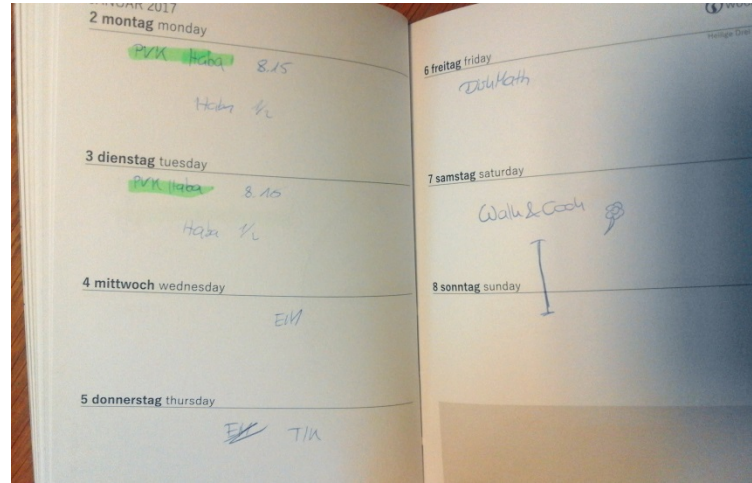 JANUAR 2017
2 montag monday
PVK Haba 8.15
Haba 1/2
3 dienstag tuesday
PVK Haba 8.15
Haba 1/2
4 mittwoch wednesday
5 donnerstag thursday
6 freitag friday
Heilige Drei
7 samstag saturday
Walk & Cook
8 sonntag sunday